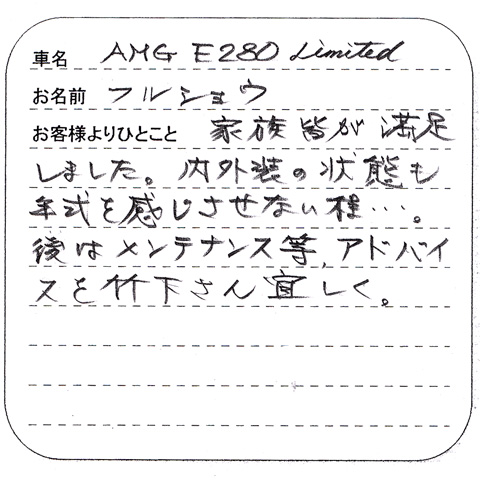 車名 AMG E280 Limited
お名前 フルショウ
お客様よりひとこと 家族皆が満足
しました。内外装の状態も
年式を感じさせない程…。
後はメンテナンス等、アドバイ
スを竹下さん宜しく。